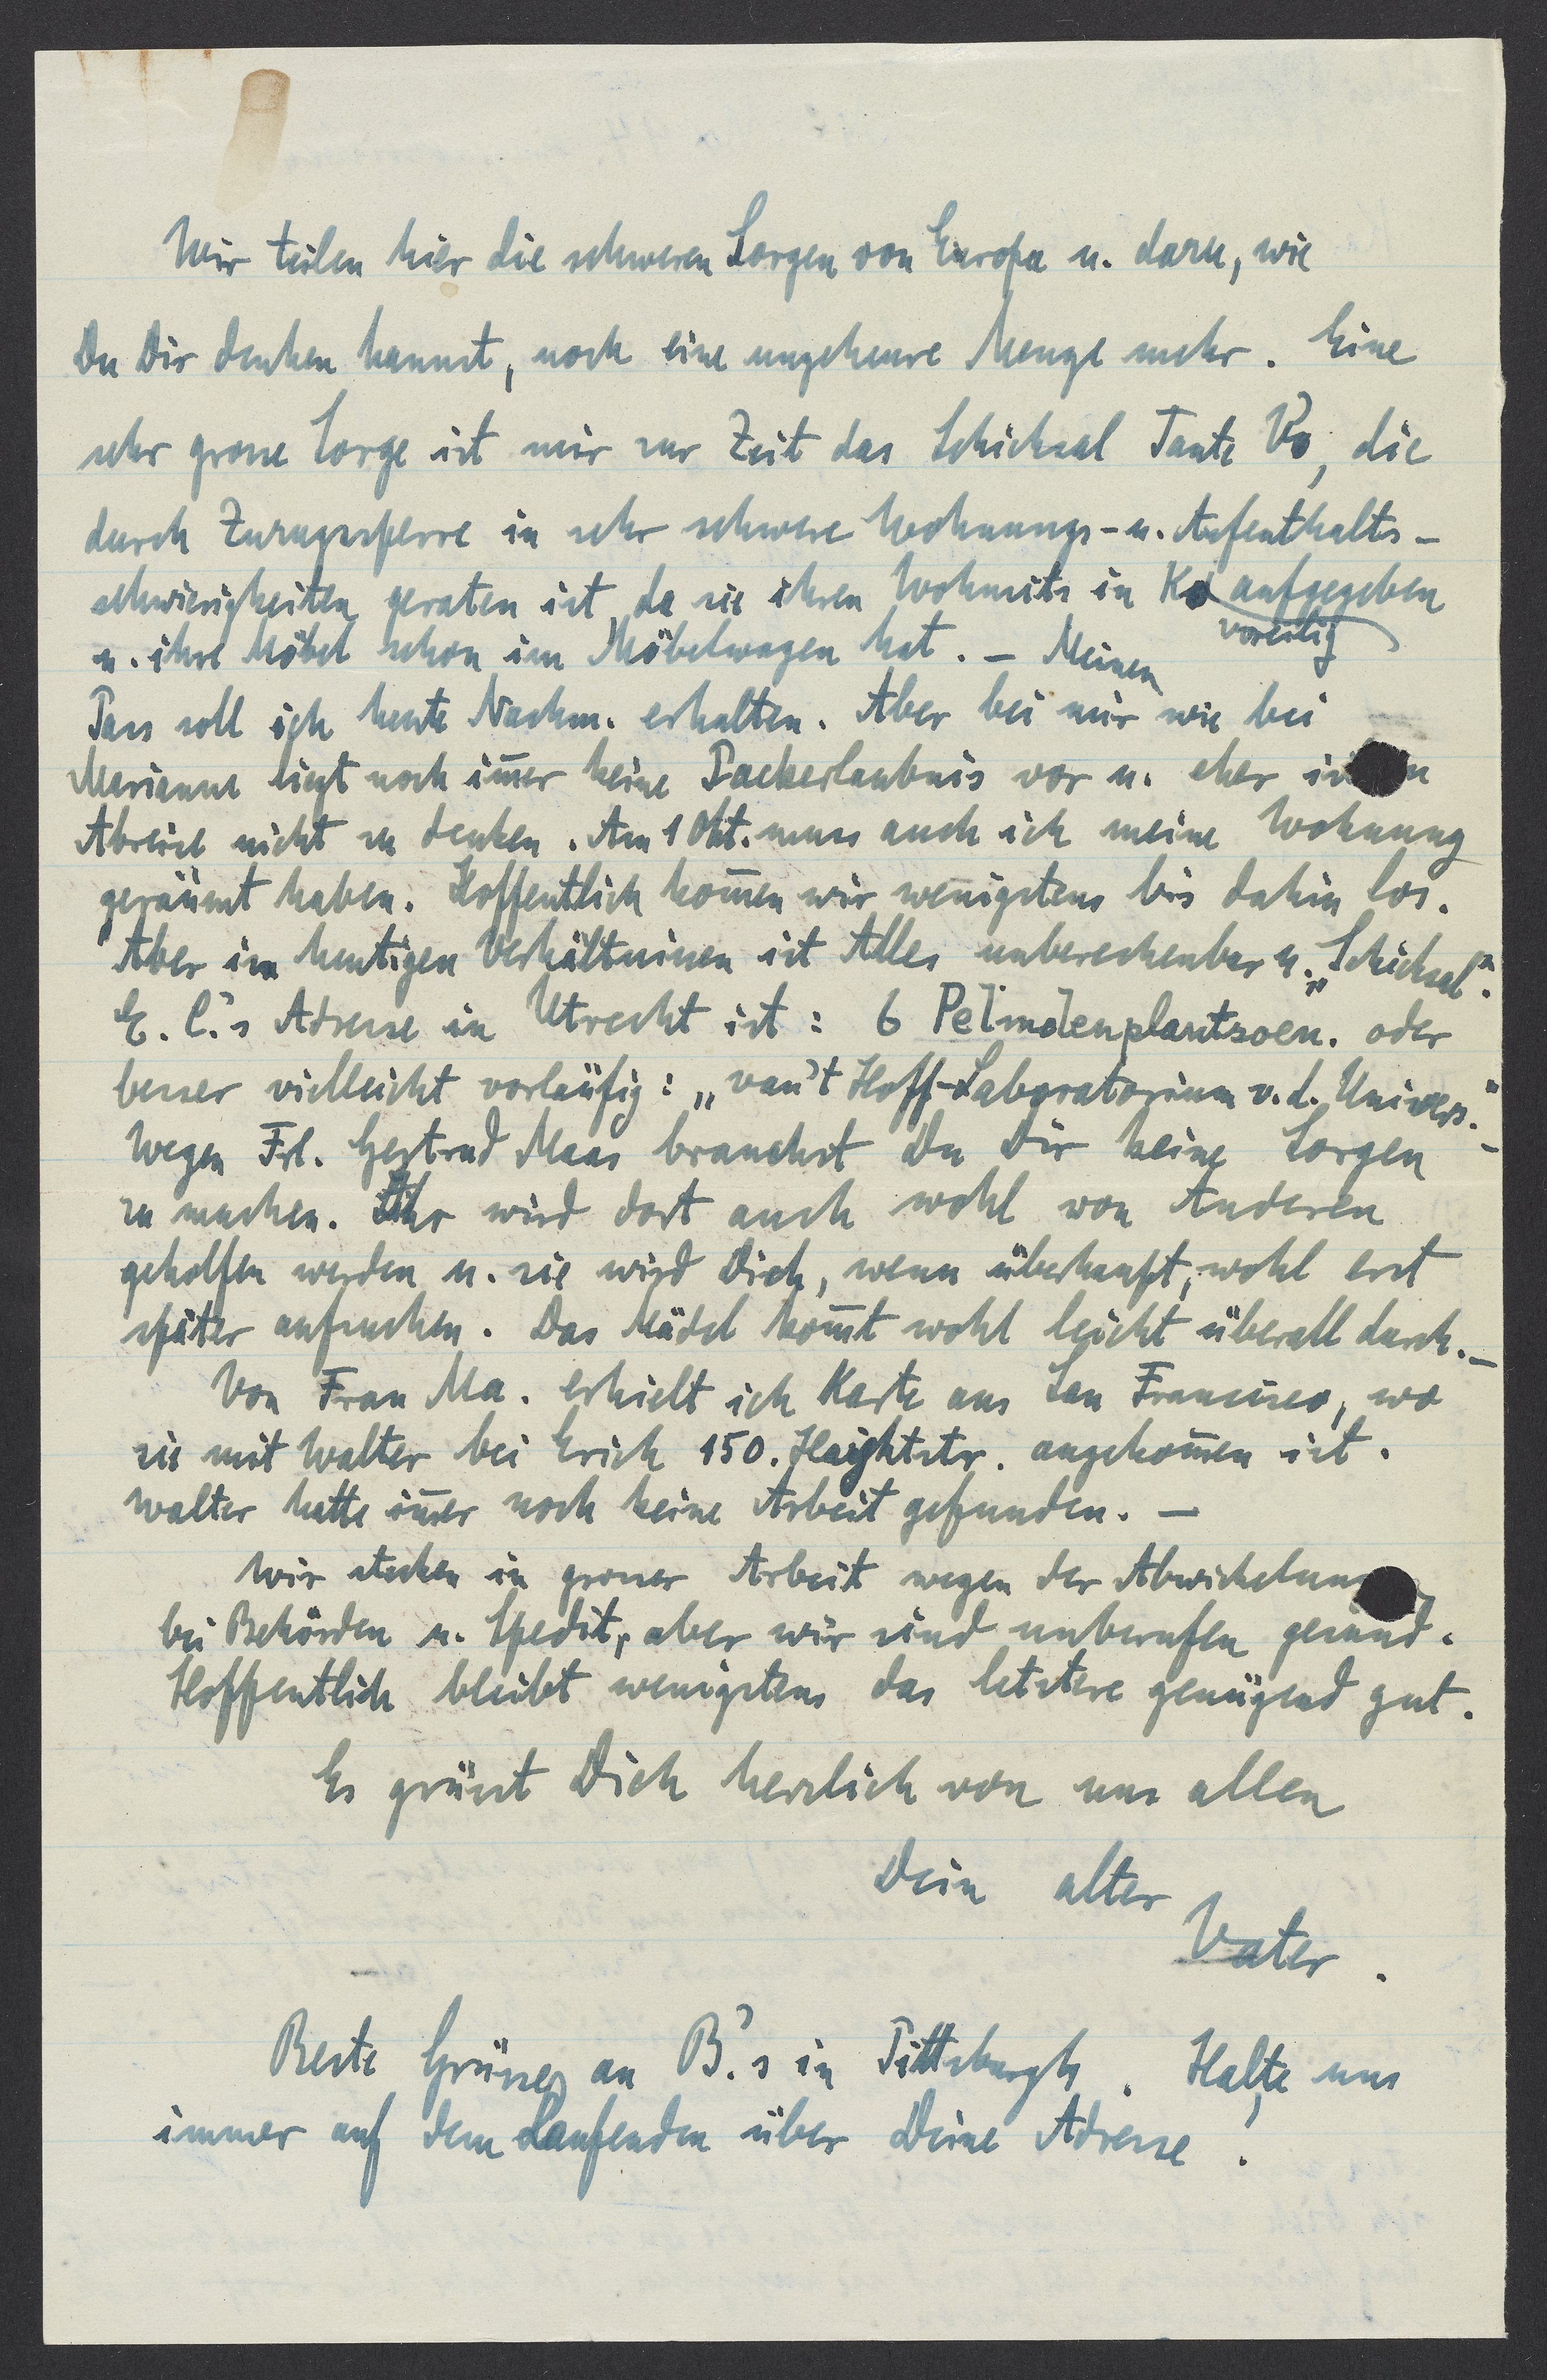 Wir teilen hier die schweren Sorgen von Europa u. dazu, wie
Du Dir denken kannst, noch eine ungeheure Menge mehr. Eine
sehr grosse Sorge ist mir zur Zeit das Schicksal Tante Vo, die
durch Zuzugssperre in sehr schwere Wohnungs- u. Aufenthalts-
schwierigkeiten geraten ist, da sie ihren Wohnsitz in Kö aufgegeben
voreilig
u. ihre Möbel schon im Möbelwagen hat. – Meinen
Pass soll ich heute Nachm. erhalten. Aber bei mir wie bei
Marianne liegt noch im̅er keine Packerlaubnis vor u. eher ist an
Abreise nicht zu denken. Am 1 Okt. muss auch ich meine Wohnung
geräumt haben. Hoffentlich kom̅en wir wenigstens bis dahin los.
Aber in heutigen Verhältnissen ist Alles unberechenbar u. „Schicksal".
E. C.'s Adresse in Utrecht ist: 6 oder
besser vielleicht vorläufig: „van't Hoff-Laboratorium v. d. Univers."–
Wegen Frl. Gertrud Maas brauchst Du Dir keine Sorgen
zu machen. Ihr wird dort auch wohl von Anderen
geholfen werden u. sie wird Dich, wenn überhaupt, wohl erst
später aufsuchen. Das Mädel kom̅t wohl leicht überall durch. –
Von Frau Ma. erhielt ich Karte aus San Francisco, wo
sie mit Walter bei Erich 150. Haightstr. angekom̅en ist.
Walter hatte im̅er noch keine Arbeit gefunden. –
Wir stecken in grosser Arbeit wegen der Abwickelung
bei Behörden u. Spedit., aber wir sind unberufen gesund.
Hoffentlich bleibt wenigstens das letztere genügend gut.
Es grüsst Dich herzlich von uns allen
Dein alter
Vater.
Beste Grüsse an B.'s in Pittsburgh. Halte uns
immer auf dem Laufenden über Deine Adresse!